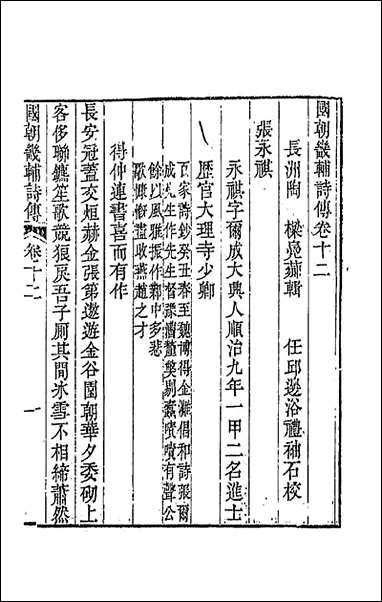 國朝畿輔詩傳卷十二
長洲陶　樑鳧薌輯　任邱邊浴禮袖石校
張永祺
永祺字爾成大興人順治九年一甲二名進士
歷官大理寺少卿
百家詩鈔癸丑春至魏博得金灘倡和詩張爾
成先生作先生督課漕釐奬剔蠹嘖嘖有聲公
餘以風雅振作鄴中多悲
歌慷慨盡收燕趙之才
得仲連書喜而有作
長安冠蓋交烜赫金張第遨遊金谷園朝華夕委砌上
客侈聯鑣笙歌競狼戾吾子厠其間冰雪不相締蕭然
國朝畿輔詩傳 卷十二 一